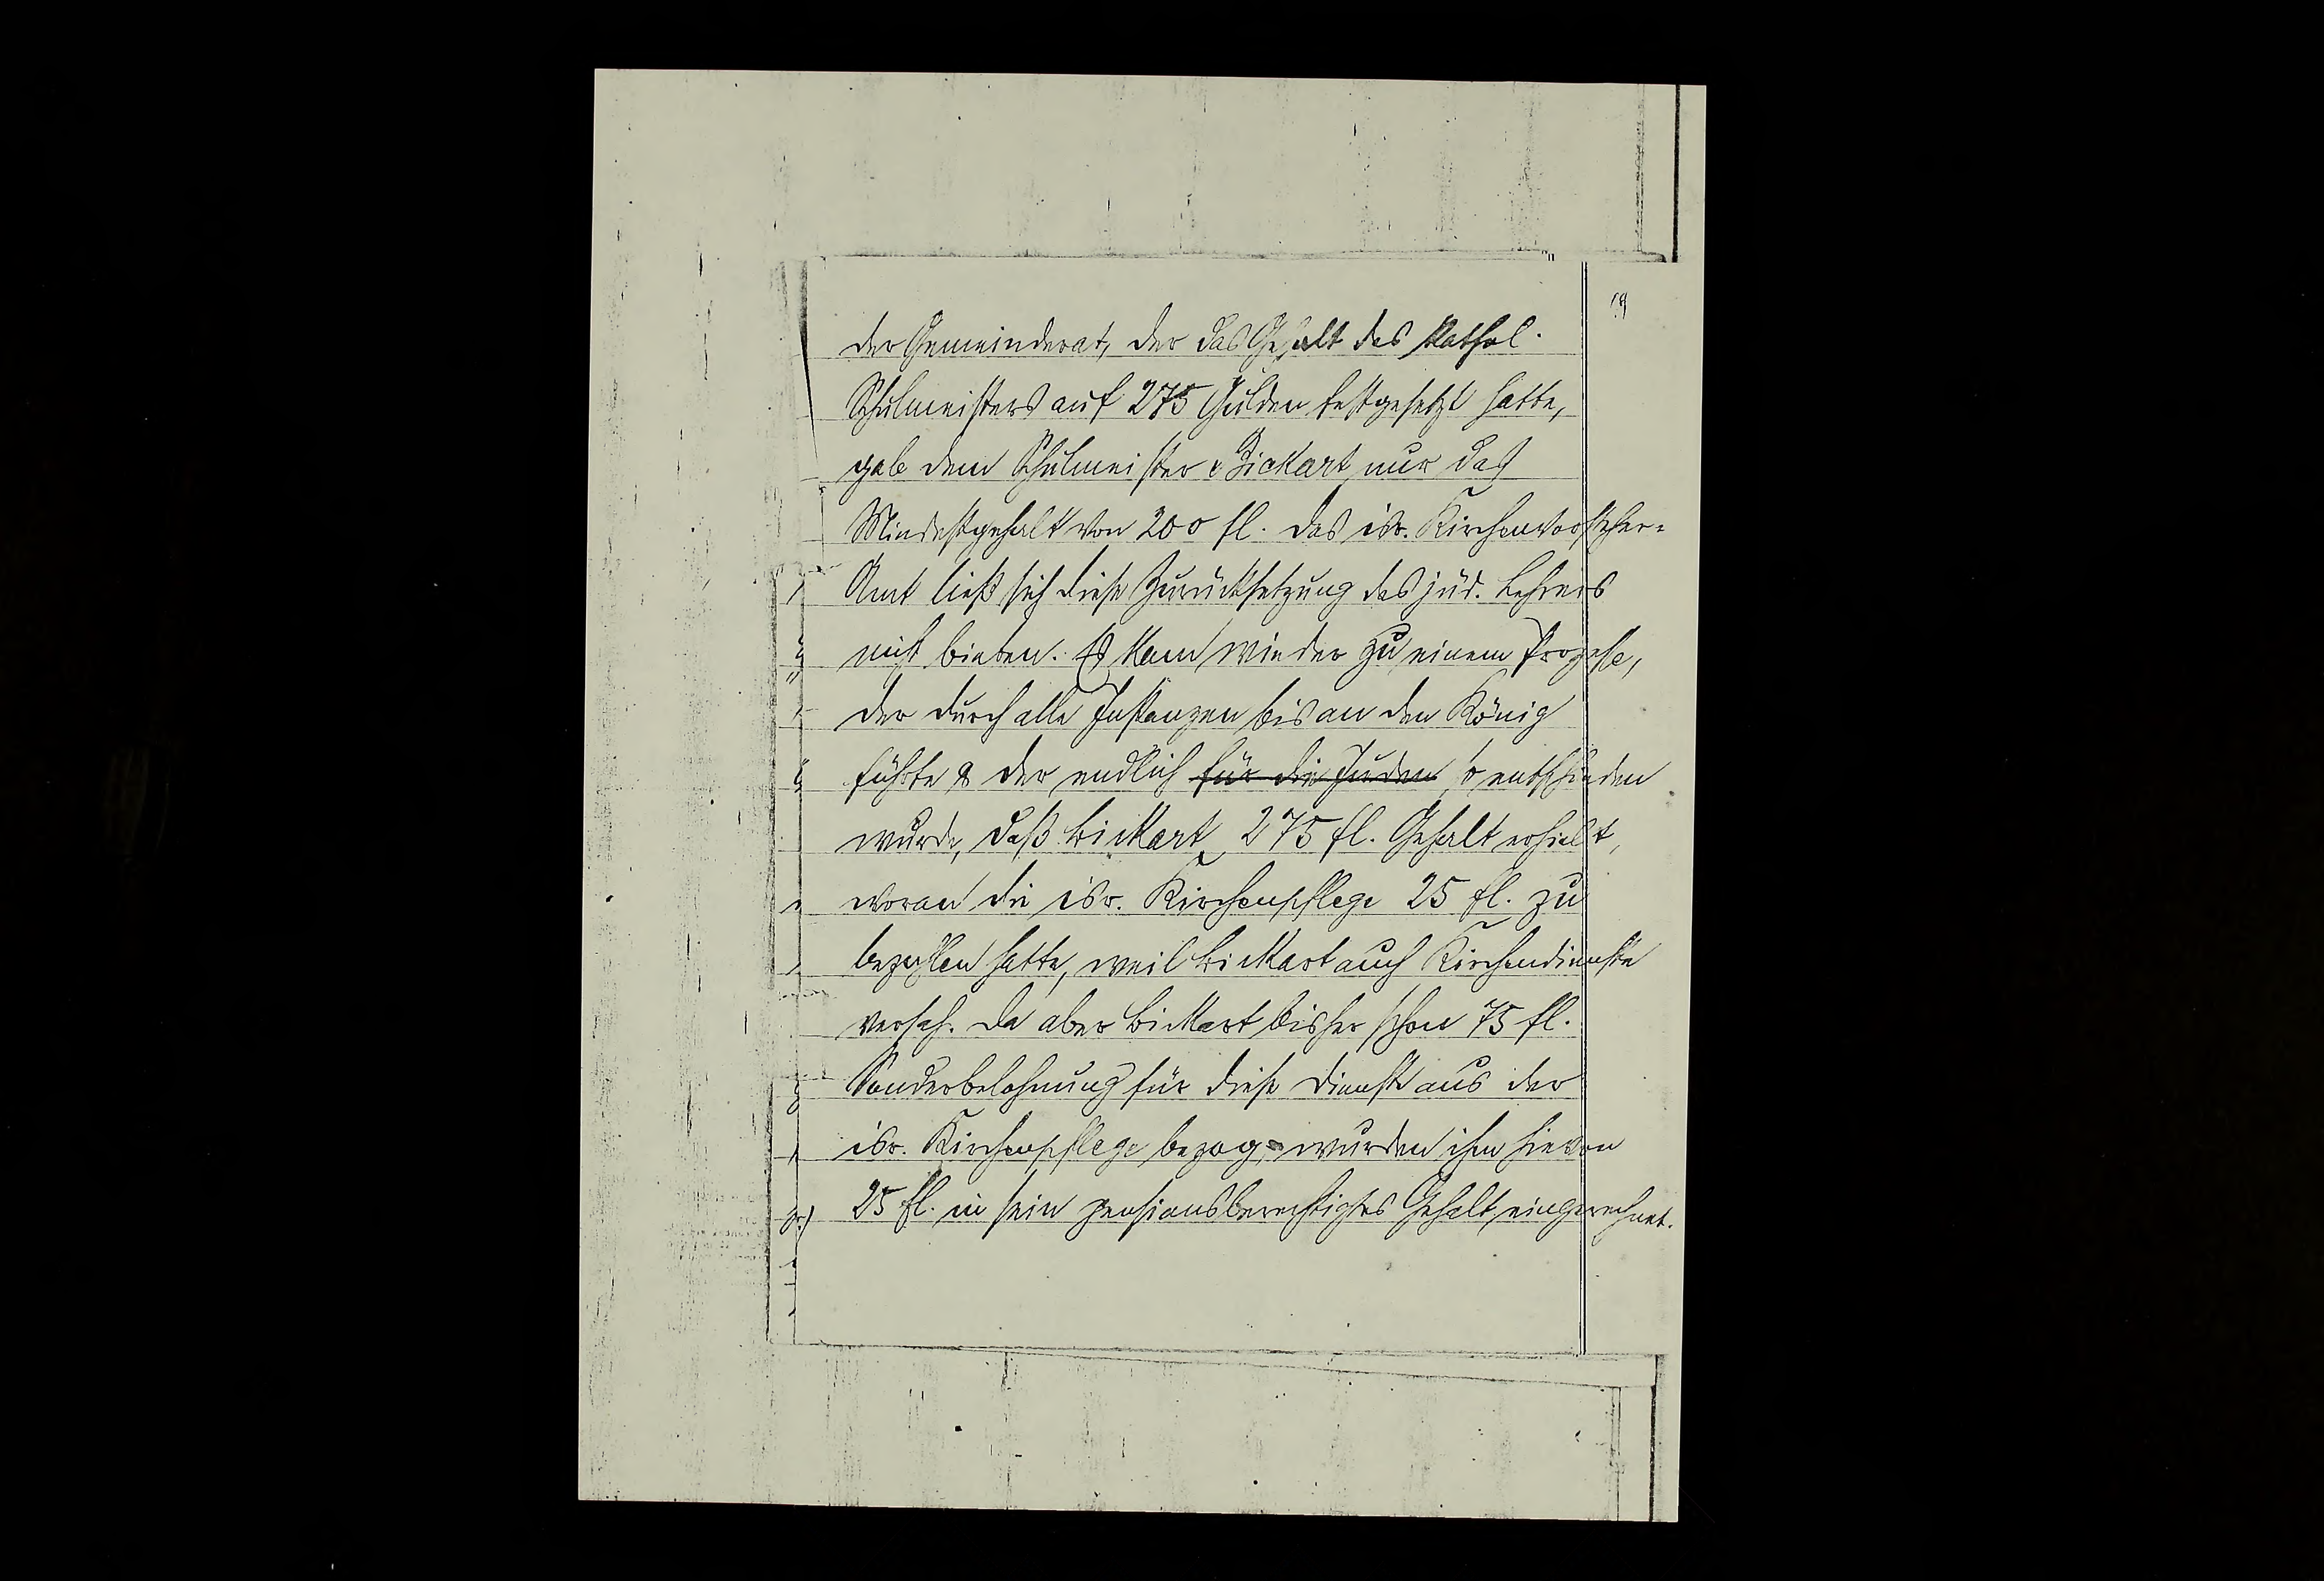 19
der Gemeinderat, der das Gehalt des kathol.
Schulmeisters auf 275 Gulden festgesetzt hatte,
gab dem Schulmeister Bickart nur das
Mindestgehalt von 200 fl. Das isr. Kirchenvorsteher=
Amt ließ sich diese Zurücksetzung des jüd. Lehrers
nicht bieten. Es kam wieder zu einem Prozesse,
der durch alle Instanzen bis an den König
führte & der endlich für die Juden so entschieden
wurde, daß Bickart 275 fl. Gehalt erhielt,
woran die isr. Kirchenpflege 25 fl. zu
bezahlen hatte, weil Bickart auch Kirchendienste
versah. Da aber Bickart bisher schon 75 fl.
Sonderbelohnung für diese Dienste aus der
isr. Kirchenpflege bezog, wurden ihm hievon
25 fl. in sein pensionsberechtigtes Gehalt eingerechnet.